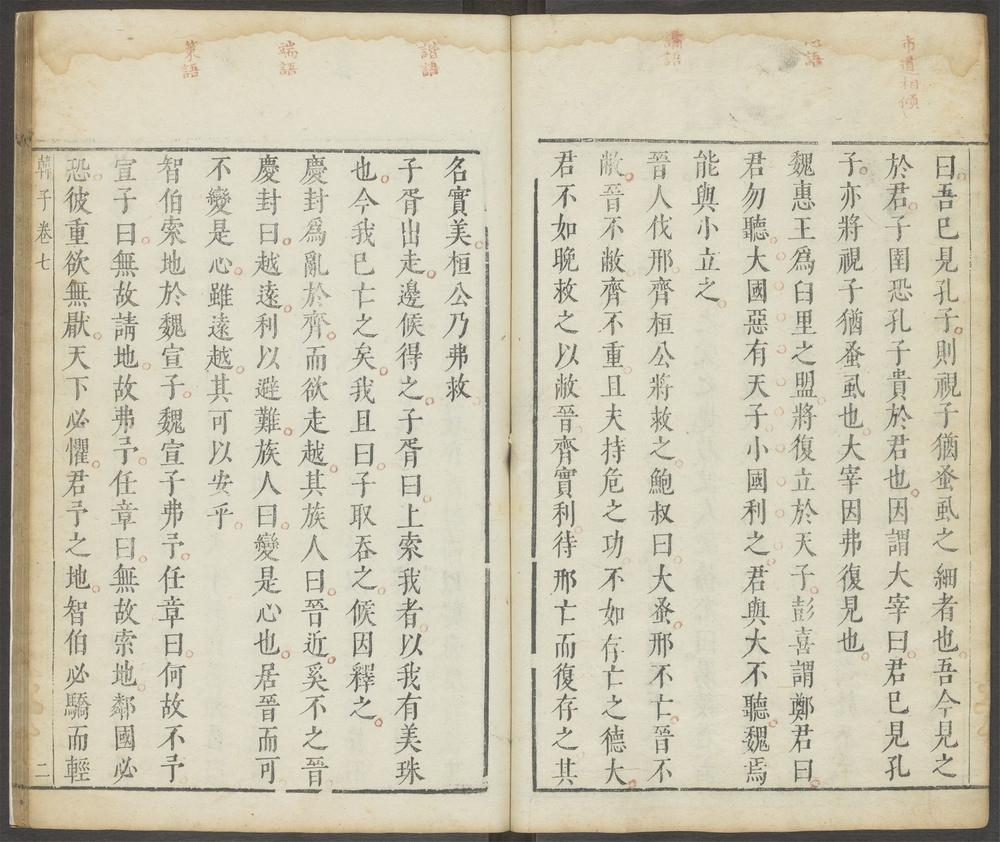 市道相傾
曰吾已見孔子則視子猶蚤虱之細者也吾今見之
於君子圉恐孔子貴於君也因謂大宰曰君已見孔
子亦將視子猶蚤虱也大宰因弗復見也
魏惠王爲臼里之盟將復立於天子彭喜謂鄭君曰
君勿聽大國惡有天子小國利之君與大不聽魏焉
能與小立之
晉人伐邢齊桓公將救之鮑叔曰大蚤邢不亡晉不
敝晉不敝齊不重且夫持危之功不如存亡之德大
君不如晚救之以敝晉齊實利待邢亡而復存之其
端語
策語
名實美桓公乃弗救
子胥出走邊候得之子胥曰上索我者以我有美珠
也今我已亡之矣我且曰子取吞之候因釋之
慶封爲亂於齊而欲走越其族人曰晉近奚不之晉
慶封曰越遠利以避難族人曰變是心也居晉而可
不變是心雖遠越其可以安乎
智伯索地於魏宣子魏宣子弗予任章曰何故不予
宣子曰無故請地故弗予任章曰無故索地鄰國必
恐彼重欲無厭天下必懼君予之地智伯必驕而輕
韓子卷七 二